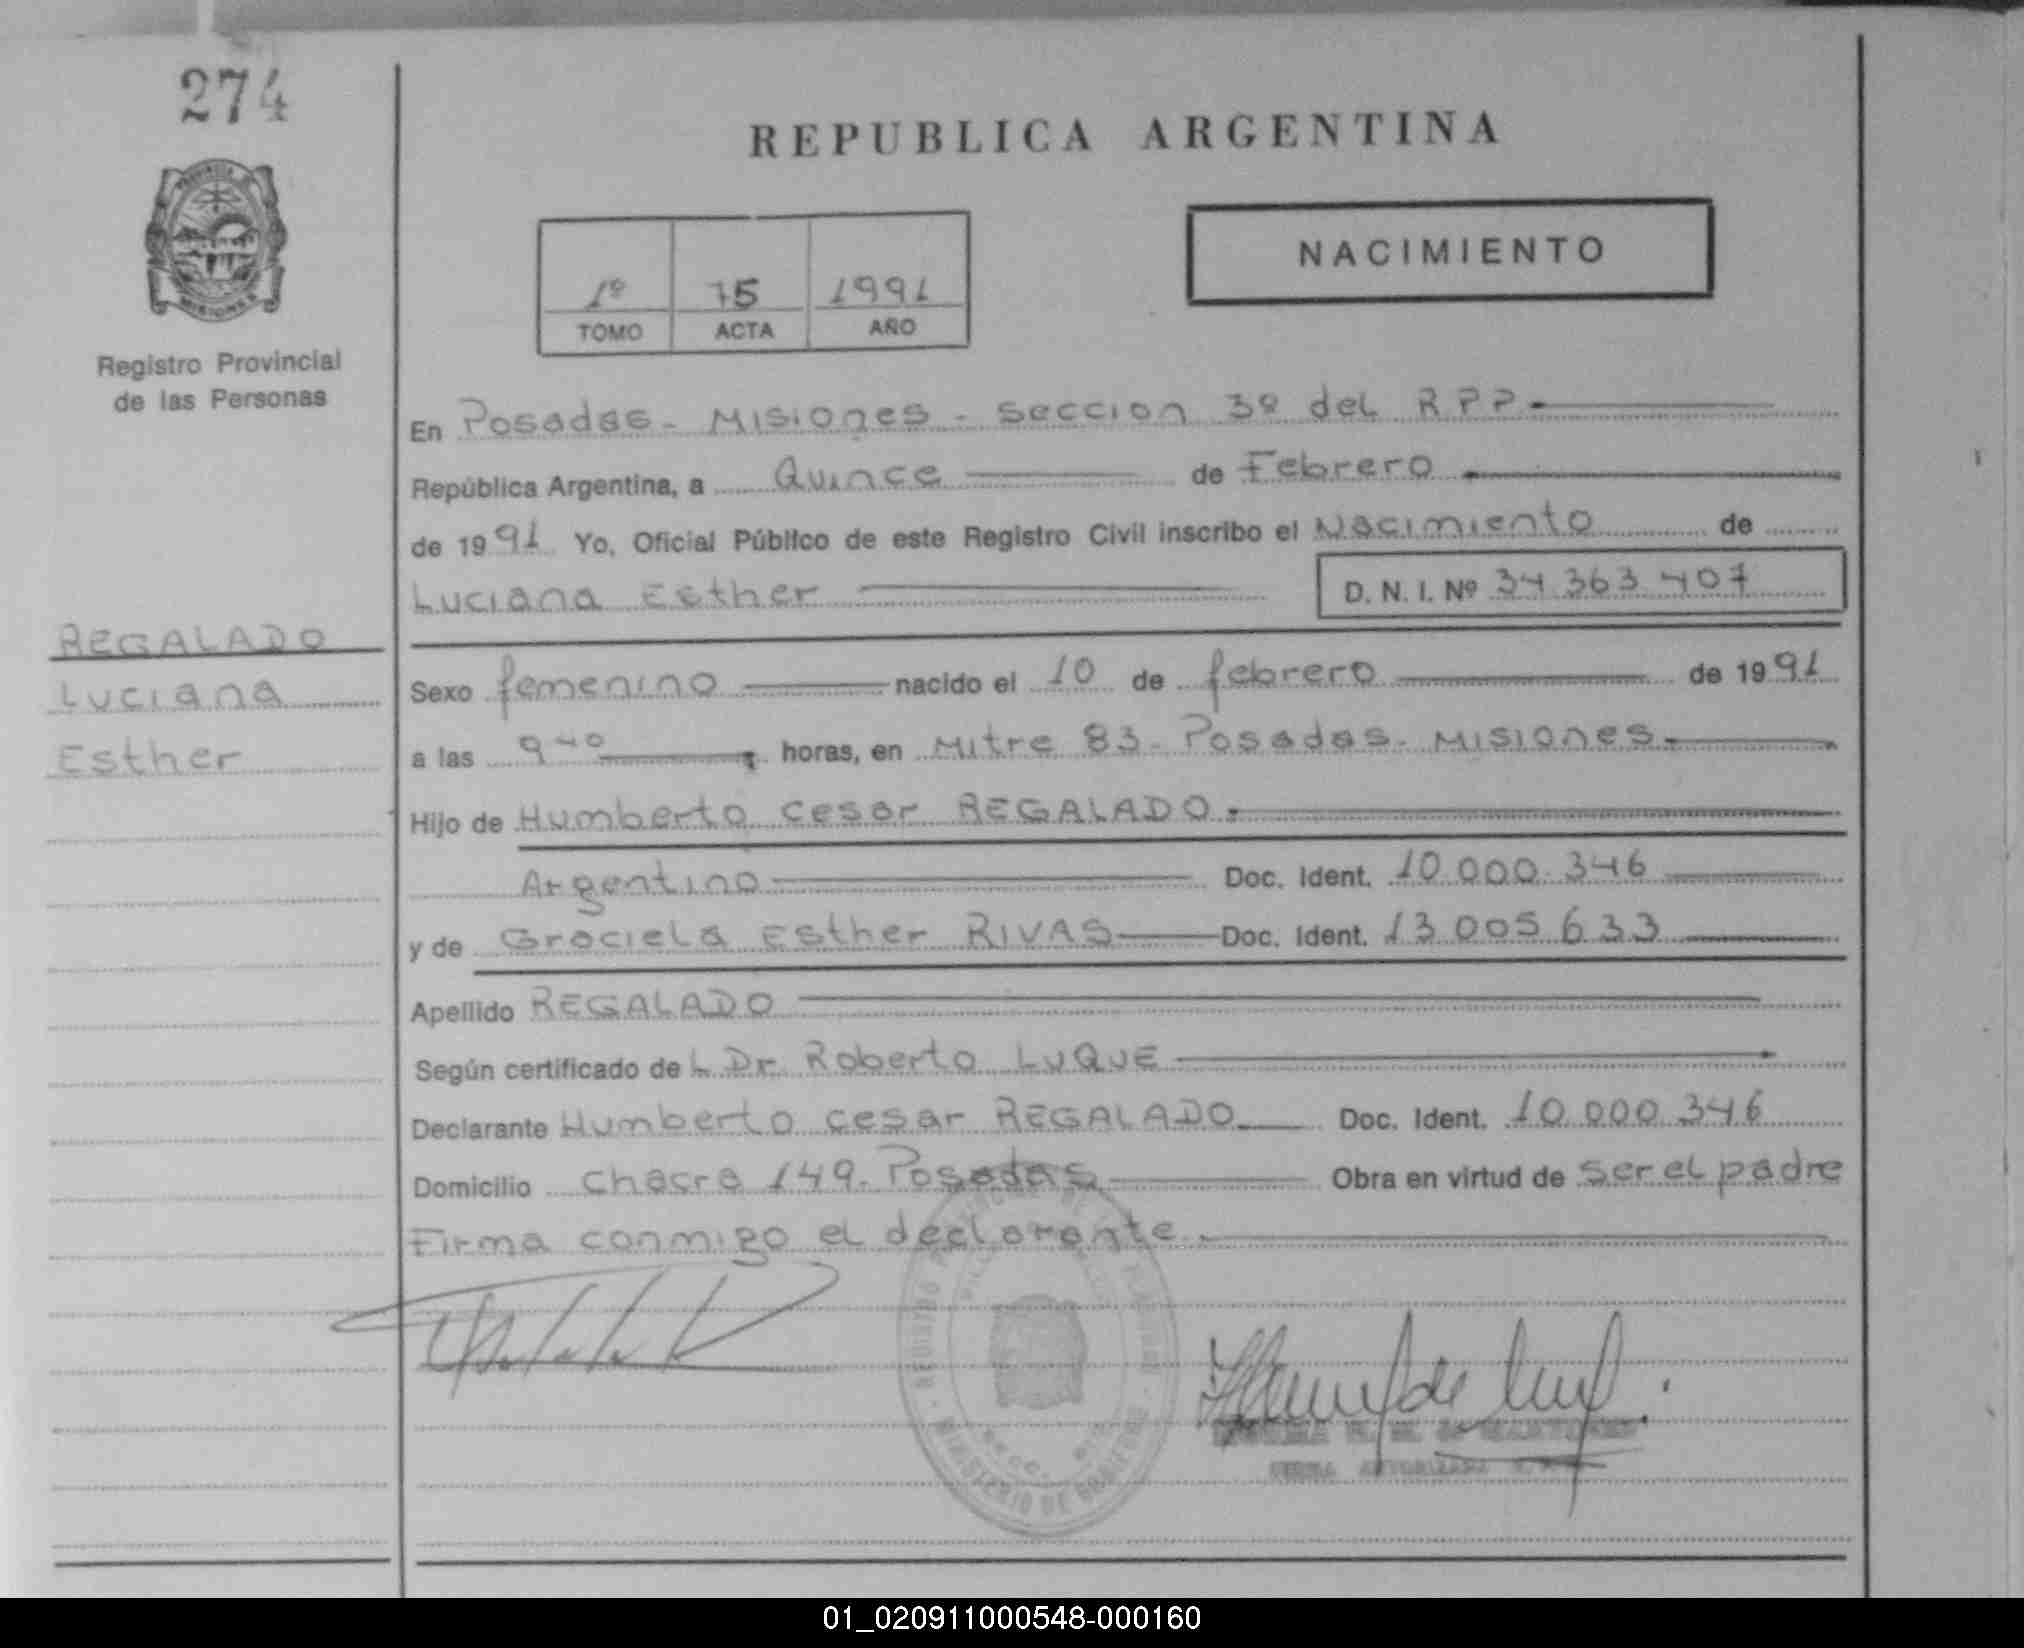 274
REPUBLICA ARGENTINA
NACIMIENTO
1º 75 1991
TOMO ACTA AÑO
MISIONES
Registro Provincial
de las Personas
En Posadas - Misiones - seccion 3º del RPP.
República Argentina, a Quince de Febrero
de 1991 Yo, Oficial Público de este Registro Civil inscribo el Nacimiento de
Luciana Esther D. N. I. Nº 34 363 407
REGALADO
Luciana
Esther
Sexo femenino nacido el 10 de febrero de 1991
a las 9 40 horas, en Mitre 83 - Posadas - Misiones.
Hijo de Humberto cesar REGALADO.
Argentino Doc. Ident. 10.000.346
y de Graciela Esther RIVAS Doc. Ident. 13 005 633
Apellido REGALADO
Según certificado de L Dr. Roberto LUQUE
Declarante Humberto cesar REGALADO Doc. Ident. 10.000.346
Domicilio chacra 149. Posadas Obra en virtud de ser el padre
Firma conmigo el declarante.
MINISTERIO DE GOBIERNO
FIRMA AUTORIZADA
01_020911000548-000160